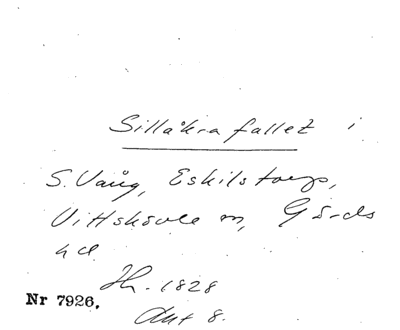 Sillåkra fallet i
S. Vång, Eskilstorps,
Vittskövle m, Gärds
hd
Jh. 1828
Nr 7926.
Akt 8.